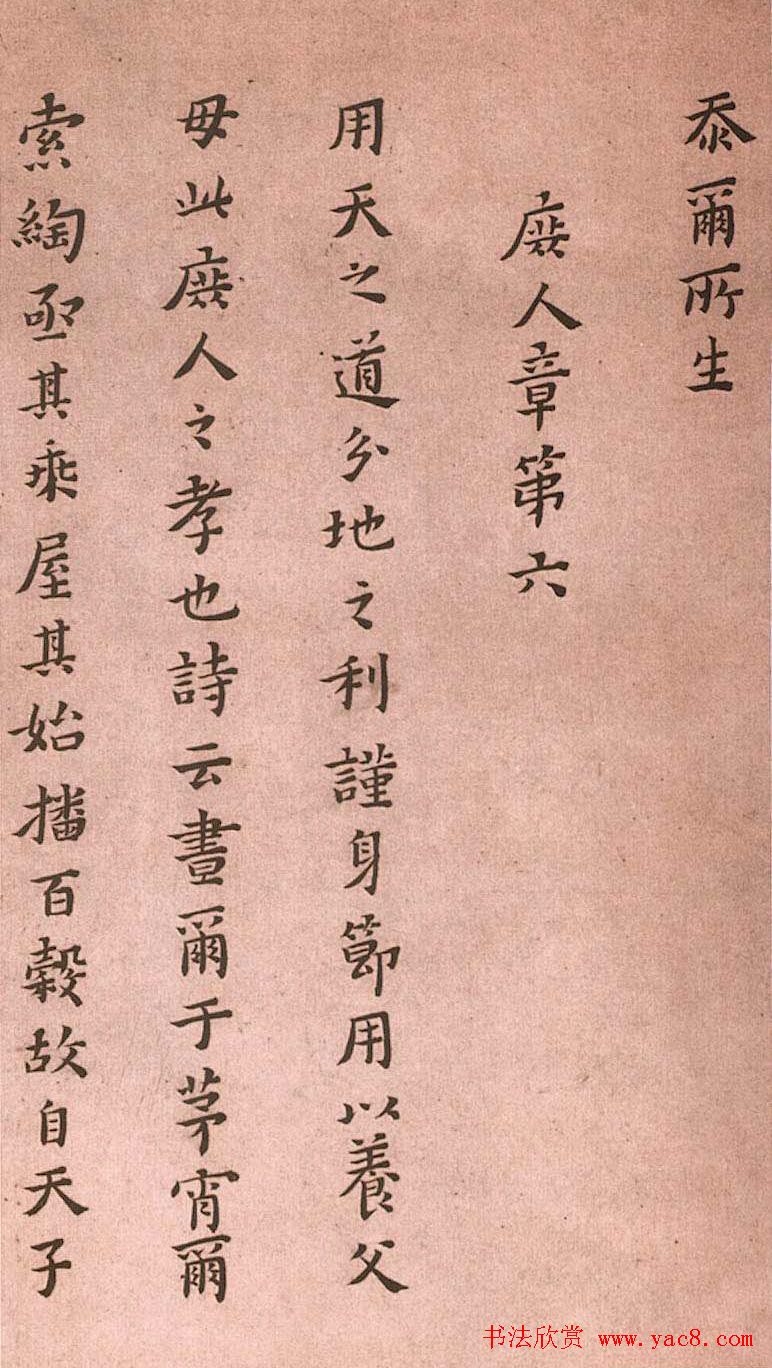 忝爾所生
庶人章第六
用天之道分地之利謹身節用以養父
母此庶人之孝也詩云晝爾于茅宵爾
索綯亟其乘屋其始播百穀故自天子
书法欣赏 www.yac8.com